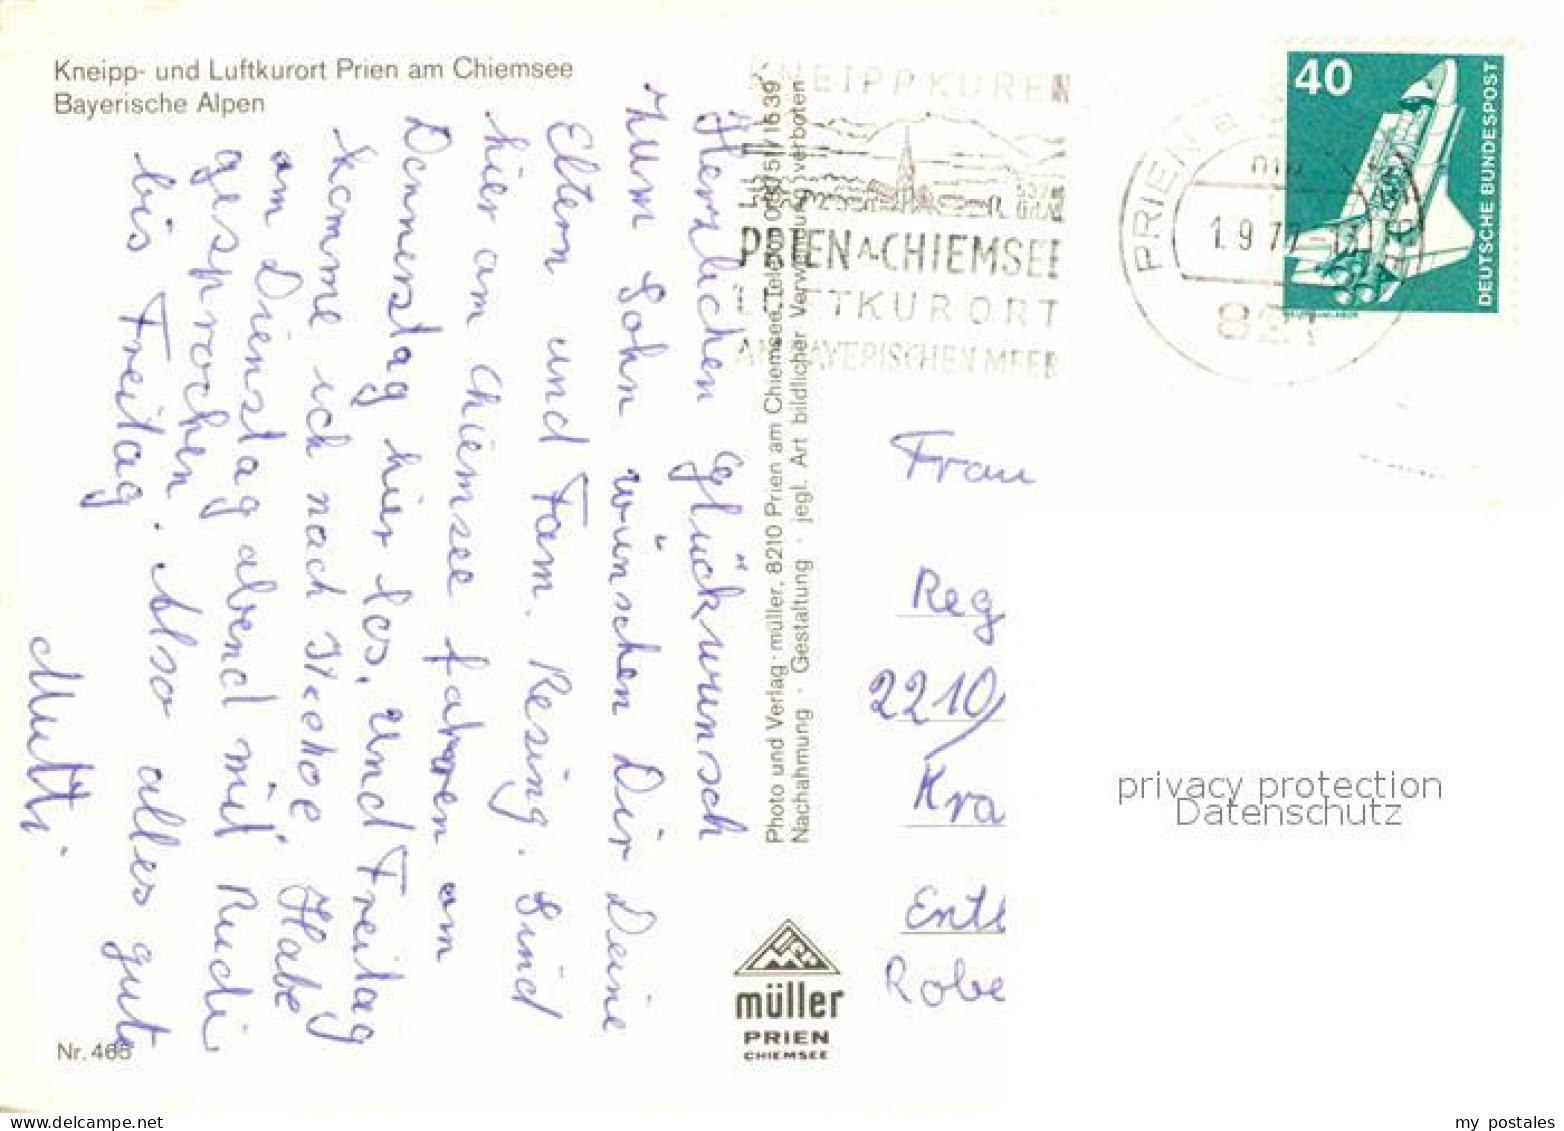 Kneipp- und Luftkurort Prien am Chiemsee
Bayerische Alpen
Herzlichen Glückwunsch
zum Sohn wünschen Dir Deine
Eltern und Fam. Resing. Sind
hier am Chiemsee fahren am
Donnerstag hier los. und Freitag
komme ich nach Itzehoe. Habe
am Dienstag abend mit Rudi
gesprochen. Also alles gute
bis Freitag
Mutti.
Nr. 465
Photo und Verlag · müller, 8210 Prien am Chiemsee, Telefon 08051/1639
Nachahmung · Gestaltung · jegl. Art bildlicher Verwendung verboten
müller
PRIEN
CHIEMSEE
KNEIPPKUREN
PRIEN A. CHIEMSEE
LUFTKURORT
AM BAYERISCHEN MEER
PRIEN a
1.9.77
821
40
DEUTSCHE BUNDESPOST
Frau
Reg
2210
Kra
Entb
Robe
privacy protection
Datenschutz
www.delcampe.net
my postales